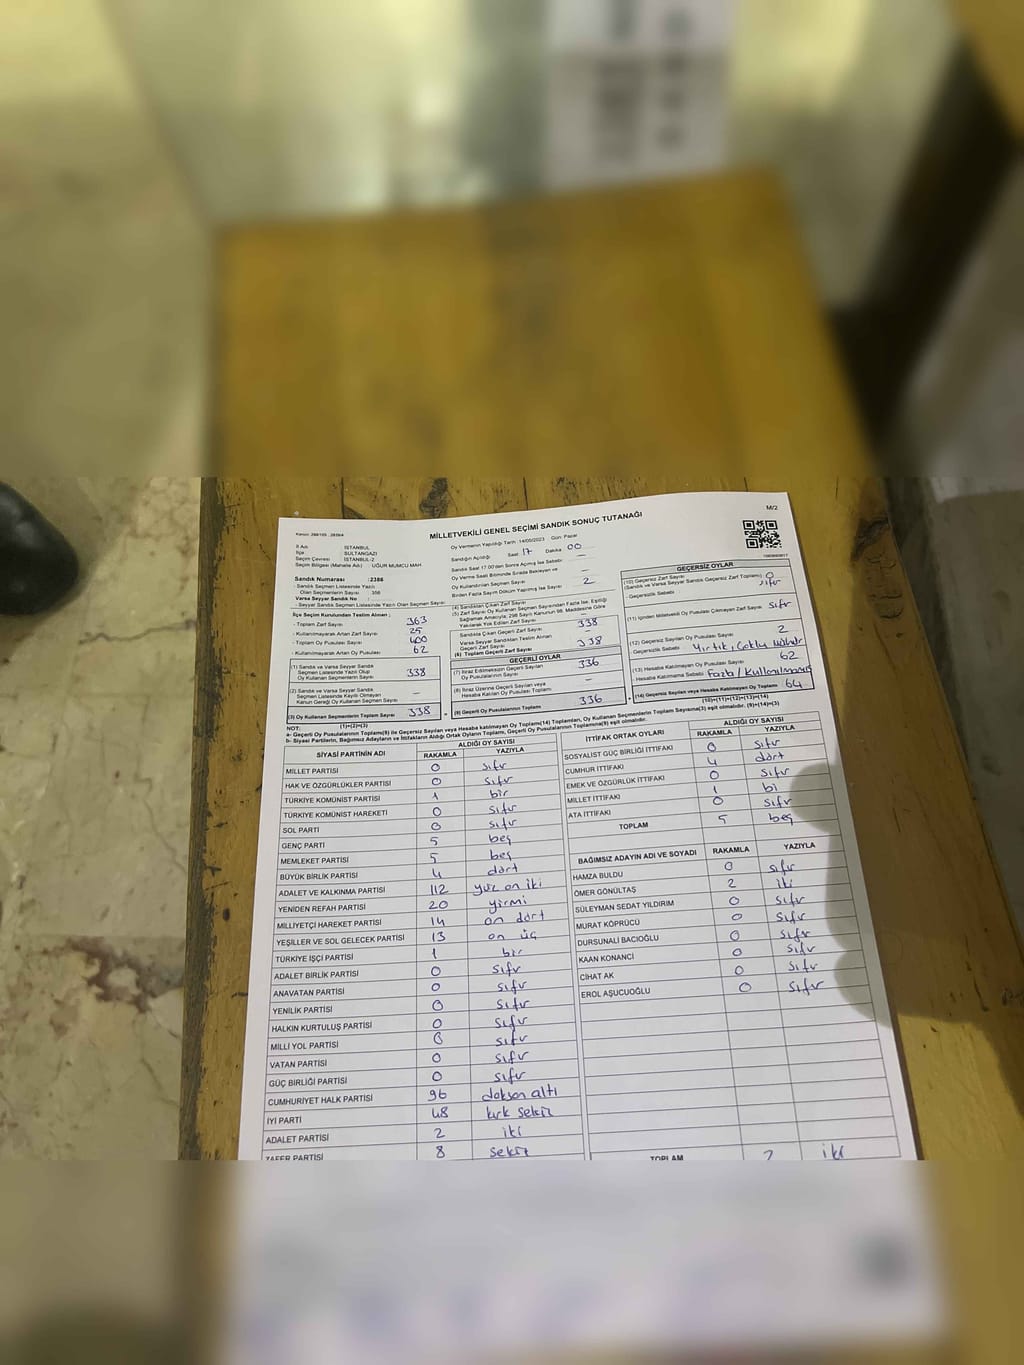 M/2
MİLLETVEKİLİ GENEL SEÇİMİ SANDIK SONUÇ TUTANAĞI
İl Adı : İSTANBUL
İlçe : SULTANGAZİ
Seçim Çevresi : İSTANBUL-2
Seçim Bölgesi (Mahalle Adı) : UĞUR MUMCU MAH.
Oy Vermenin Yapıldığı Tarih :14/05/2023 Gün: Pazar
Sandığın Açıldığı Saat 17 Dakika 00
Sandık Saat 17.00'den Sonra Açılmış İse Sebebi
Oy Verme Saati Bitiminde Sırada Bekleyen ve
Oy Kullandırılan Seçmen Sayısı —
Birden Fazla Sayım Döküm Yapılmış İse Sayısı 2
Sandık Numarası :2386
- Sandık Seçmen Listesinde Yazılı
Olan Seçmenlerin Sayısı
Varsa Seyyar Sandık No :
- Seyyar Sandık Seçmen Listesinde Yazılı Olan Seçmen Sayısı:
İlçe Seçim Kurulundan Teslim Alınan ;
- Toplam Zarf Sayısı 363
- Kullanılmayarak Artan Zarf Sayısı 25
- Toplam Oy Pusulası Sayısı 400
- Kullanılmayarak Artan Oy Pusulası 62
(1) Sandık ve Varsa Seyyar Sandık
Seçmen Listesinde Yazılı Olup
Oy Kullanan Seçmenlerin Sayısı 338
(2) Sandık ve Varsa Seyyar Sandık
Seçmen Listesinde Kayıtlı Olmayan
Kanun Gereği Oy Kullanan Seçmen Sayısı —
(3) Oy Kullanan Seçmenlerin Toplam Sayısı 338
(1)+(2)=(3)
(4) Sandıktan Çıkan Zarf Sayısı
(5) Zarf Sayısı Oy Kullanan Seçmen Sayısından Fazla İse, Eşitliği
Sağlamak Amacıyla; 298 Sayılı Kanunun 98. Maddesine Göre
Yakılarak Yok Edilen Zarf Sayısı —
Sandıkta Çıkan Geçerli Zarf Sayısı 338
Varsa Seyyar Sandıktan Teslim Alınan
Geçerli Zarf Sayısı
(6) Toplam Geçerli Zarf Sayısı 338
GEÇERLİ OYLAR
(7) İtiraz Edilmeksizin Geçerli Sayılan
Oy Pusulalarının Sayısı 336
(8) İtiraz Üzerine Geçerli Sayılan veya
Hesaba Katılan Oy Pusulası Toplamı —
(9) Geçerli Oy Pusulalarının Toplamı 336
GEÇERSİZ OYLAR
(10) Geçersiz Zarf Sayısı 0
(Sandık ve Varsa Seyyar Sandık Geçersiz Zarf Toplamı) sıfır
- Geçersizlik Sebebi
(11) İçinden Milletvekili Oy Pusulası Çıkmayan Zarf Sayısı sıfır
(12) Geçersiz Sayılan Oy Pusulası Sayısı 2
- Geçersizlik Sebebi Yırtık, Çoklu mühür
(13) Hesaba Katılmayan Oy Pusulası Sayısı 62
- Hesaba Katılmama Sebebi Fazla / Kullanılmadı
(14) Geçersiz Sayılan veya Hesaba Katılmayan Oy Toplamı 64
(10)+(11)+(12)+(13)=(14)
NOT:
a- Geçerli Oy Pusulalarının Toplamı(9) ile Geçersiz Sayılan veya Hesaba katılmayan Oy Toplamı(14) Toplamları, Oy Kullanan Seçmenlerin Toplam Sayısına(3) eşit olmalıdır. (9)+(14)=(3)
b- Siyasi Partilerin, Bağımsız Adayların ve İttifakların Aldığı Ortak Oyların Toplamı, Geçerli Oy Pusulalarının Toplamına(9) eşit olmalıdır.
SİYASİ PARTİNİN ADI ALDIĞI OY SAYISI
RAKAMLA YAZIYLA
MİLLET PARTİSİ 0 sıfır
HAK VE ÖZGÜRLÜKLER PARTİSİ 0 sıfır
TÜRKİYE KOMÜNİST PARTİSİ 1 bir
TÜRKİYE KOMÜNİST HAREKETİ 0 sıfır
SOL PARTİ 0 sıfır
GENÇ PARTİ 5 beş
MEMLEKET PARTİSİ 5 beş
BÜYÜK BİRLİK PARTİSİ 4 dört
ADALET VE KALKINMA PARTİSİ 112 yüz on iki
YENİDEN REFAH PARTİSİ 20 yirmi
MİLLİYETÇİ HAREKET PARTİSİ 14 on dört
YEŞİLLER VE SOL GELECEK PARTİSİ 13 on üç
TÜRKİYE İŞÇİ PARTİSİ 1 bir
ADALET BİRLİK PARTİSİ 0 sıfır
ANAVATAN PARTİSİ 0 sıfır
YENİLİK PARTİSİ 0 sıfır
HALKIN KURTULUŞ PARTİSİ 0 sıfır
MİLLİ YOL PARTİSİ 0 sıfır
VATAN PARTİSİ 0 sıfır
GÜÇ BİRLİĞİ PARTİSİ 0 sıfır
CUMHURİYET HALK PARTİSİ 96 doksan altı
İYİ PARTİ 48 kırk sekiz
ADALET PARTİSİ 2 iki
ZAFER PARTİSİ 8 sekiz
İTTİFAK ORTAK OYLARI ALDIĞI OY SAYISI
RAKAMLA YAZIYLA
SOSYALİST GÜÇ BİRLİĞİ İTTİFAKI 0 sıfır
CUMHUR İTTİFAKI 4 dört
EMEK VE ÖZGÜRLÜK İTTİFAKI 0 sıfır
MİLLET İTTİFAKI 1 bi
ATA İTTİFAKI 0 sıfır
TOPLAM 5 beş
BAĞIMSIZ ADAYIN ADI VE SOYADI RAKAMLA YAZIYLA
HAMZA BULDU 0 sıfır
ÖMER GÖNÜLTAŞ 2 iki
SÜLEYMAN SEDAT YILDIRIM 0 sıfır
MURAT KÖPRÜCÜ 0 sıfır
DURSUNALİ BACIOĞLU 0 sıfır
KAAN KONANCİ 0 sıfır
CİHAT AK 0 sıfır
EROL AŞUCUOĞLU 0 sıfır
TOPLAM 2 iki